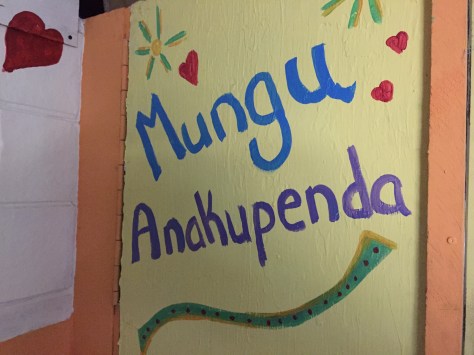 Mungu
Anakupenda